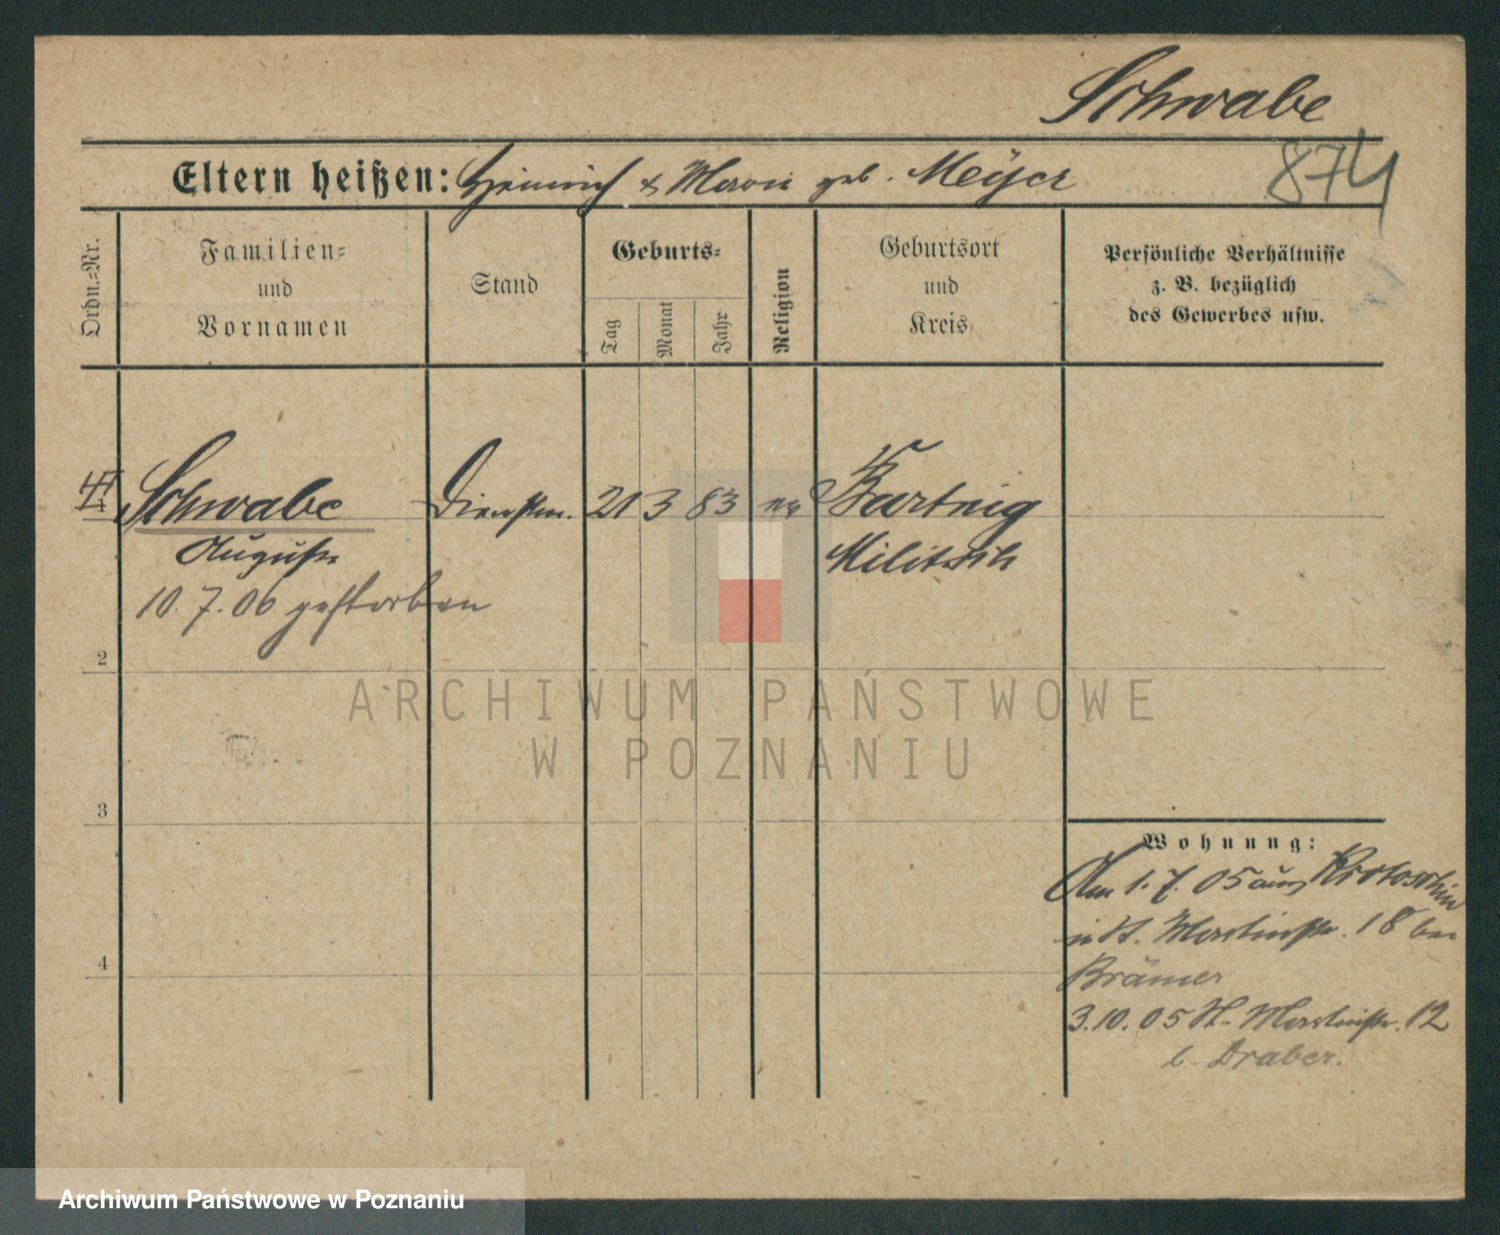 Schwabe
Eltern heißen: Heinrich & Marie geb. Meÿer
874
Ordn.-Nr.
Familien-
und
Vornamen
Stand
Geburts-
Tag
Monat
Jahr
Religion
Geburtsort
und
Kreis
Persönliche Verhältnisse
z. B. bezüglich
des Gewerbes usw.
Schwabe Dienstm. 21 3 83 ev Bartnig
Auguste Militsch
10. 7. 06 gestorben
2
ARCHIWUM PAŃSTWOWE
W POZNANIU
3
4
Wohnung:
Am 1. 7. 05 aus Krotoschin
in St. Martinstr. 18 bei
Brämer
3. 10. 05 St. Martinstr. 12
b. Draber.
Archiwum Państwowe w Poznaniu